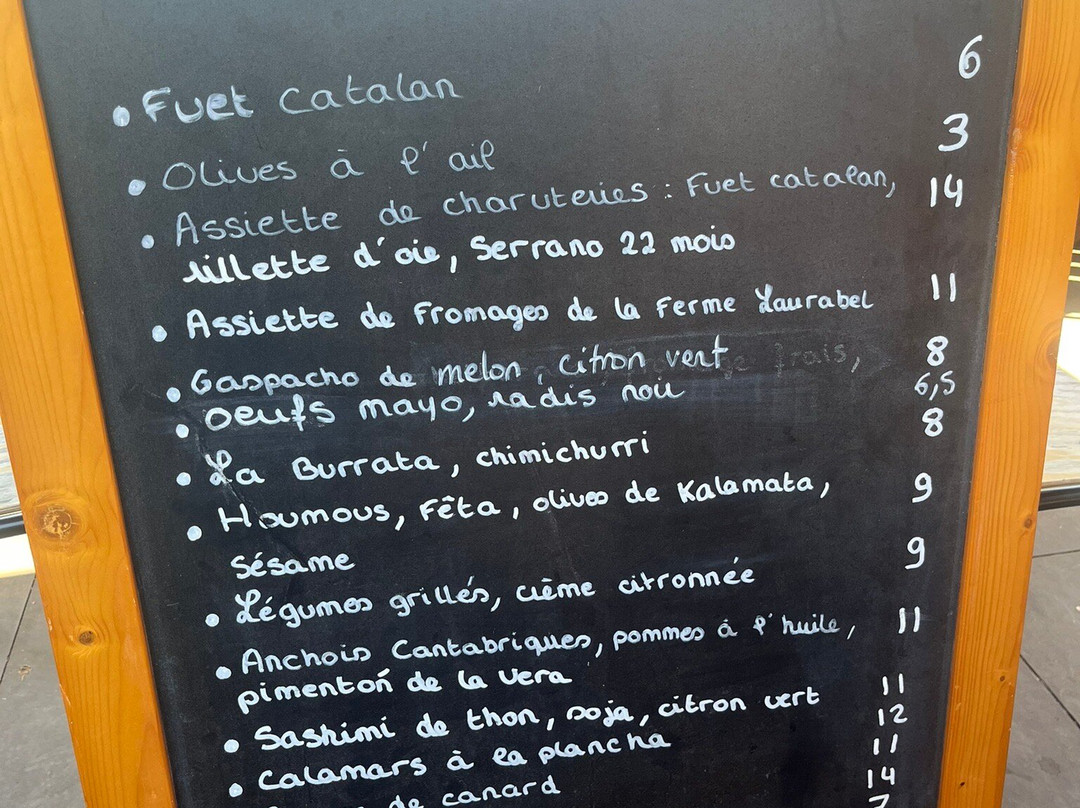 • Fuet Catalan 6
• Olives à l'ail 3
• Assiette de charuteries : Fuet catalan, 14
rillette d'oie, Serrano 22 mois
• Assiette de Fromages de la Ferme Laurabel 11
• Gaspacho de melon, citron vert frais, 8
• oeufs mayo, radis noir 6,5
• La Burrata, chimichurri 8
• Houmous, Fêta, olives de Kalamata, 9
sésame
• Légumes grillés, crème citronnée 9
• Anchois Cantabriques, pommes à l'huile, 11
pimentoń de la Vera
• Sashimi de thon, soja, citron vert 11
• Calamars à la plancha 12
de canard 11
14
7